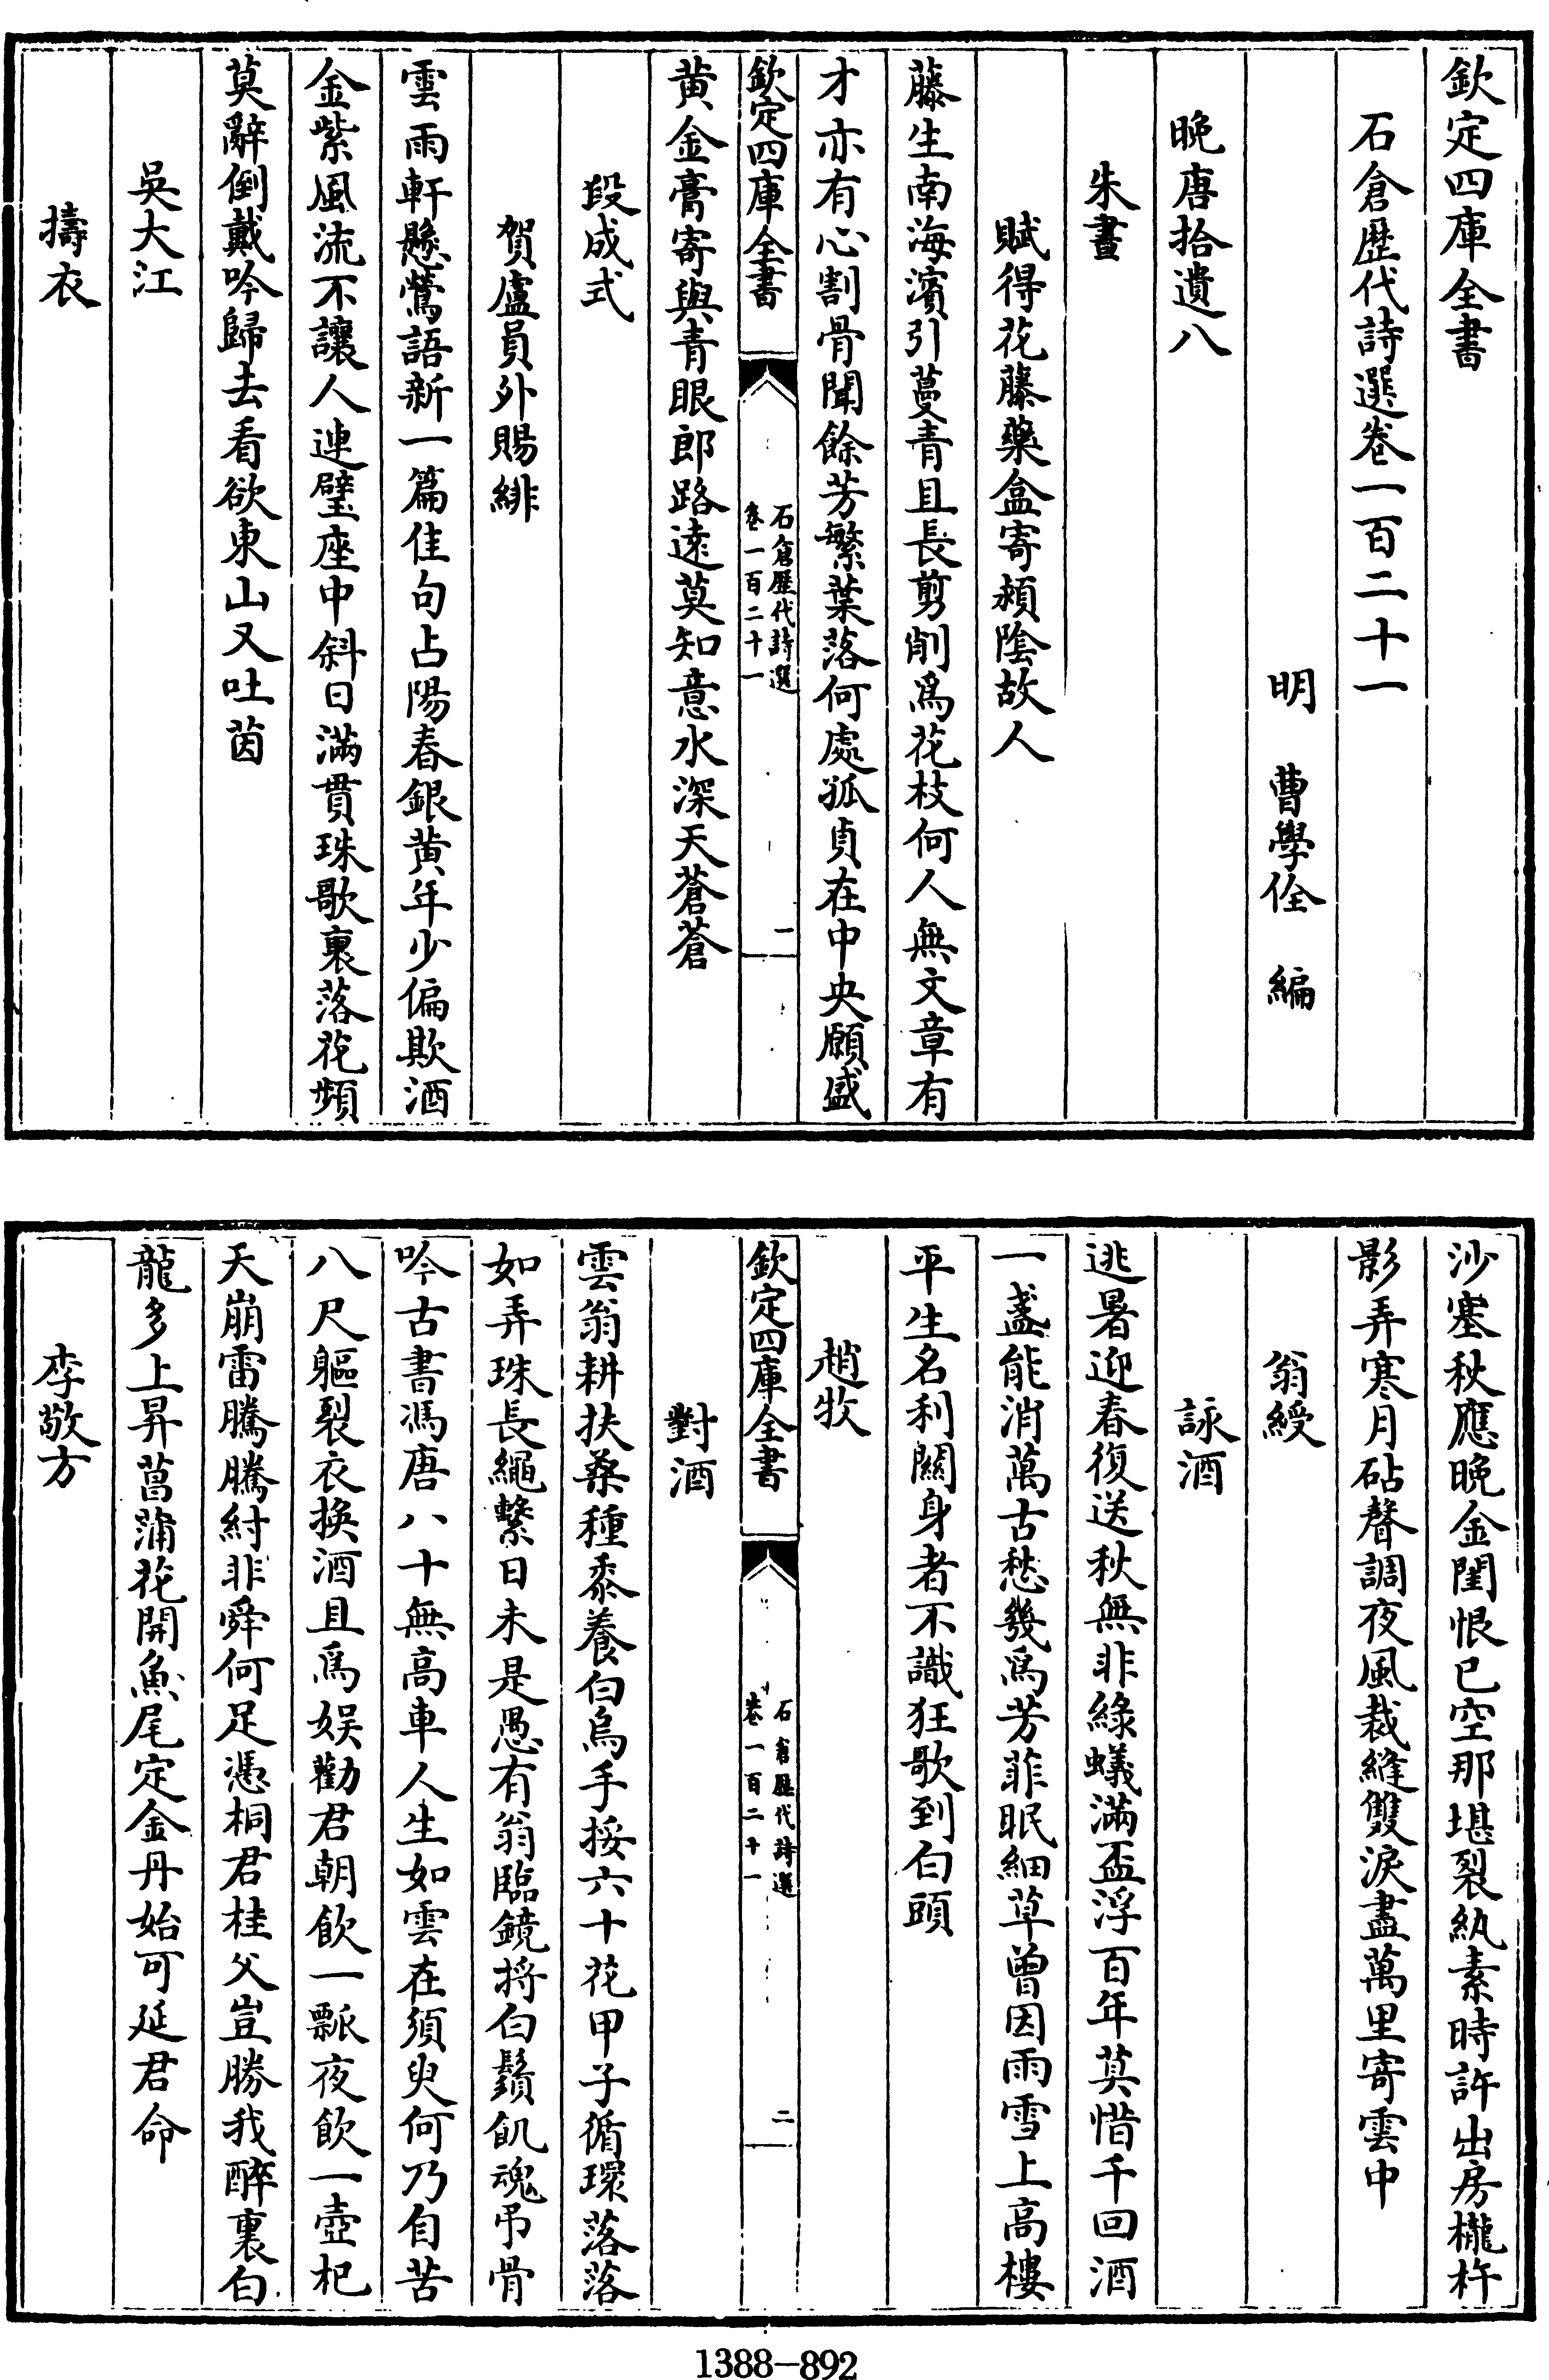 欽定四庫全書
石倉歷代詩選卷一百二十一
明 曹學佺 編
晚唐拾遺八
朱晝
賦得花藤藥盒寄潁陰故人
藤生南海濱引蔓青且長剪削爲花枝何人無文章有
才亦有心割骨聞餘芳繁葉落何處孤貞在中央願盛
欽定四庫全書
石倉歷代詩選
卷一百二十一
一
黄金膏寄與青眼郎路遠莫知意水深天蒼蒼
段成式
賀盧員外賜緋
雲雨軒懸鶯語新一篇佳句占陽春銀黄年少偏欺酒
金紫風流不讓人連璧座中斜日滿貫珠歌裏落花頻
莫辭倒載吟歸去看欲東山又吐茵
吳大江
擣衣
沙塞秋應晚金閨恨已空那堪裂紈素時許出房櫳杵
影弄寒月砧聲調夜風裁縫雙淚盡萬里寄雲中
翁綬
詠酒
逃暑迎春復送秋無非綠蟻滿盃浮百年莫惜千回酒
一盞能消萬古愁幾爲芳菲眠細草曾因雨雪上高樓
平生名利關身者不識狂歌到白頭
趙牧
欽定四庫全書
石倉歷代詩選
卷一百二十一
二
對酒
雲翁耕扶桑種黍養白烏手挼六十花甲子循環落落
如弄珠長繩繫日未是愚有翁臨鏡捋白鬚飢魂弔骨
吟古書馮唐八十無高車人生如雲在須臾何乃自苦
八尺軀裂衣換酒且爲娱勸君朝飲一瓢夜飲一壺杞
天崩雷騰騰紂非舜何足憑桐君桂父豈勝我醉裏白
龍多上昇菖蒲花開魚尾定金丹始可延君命
李敬方
1388-892